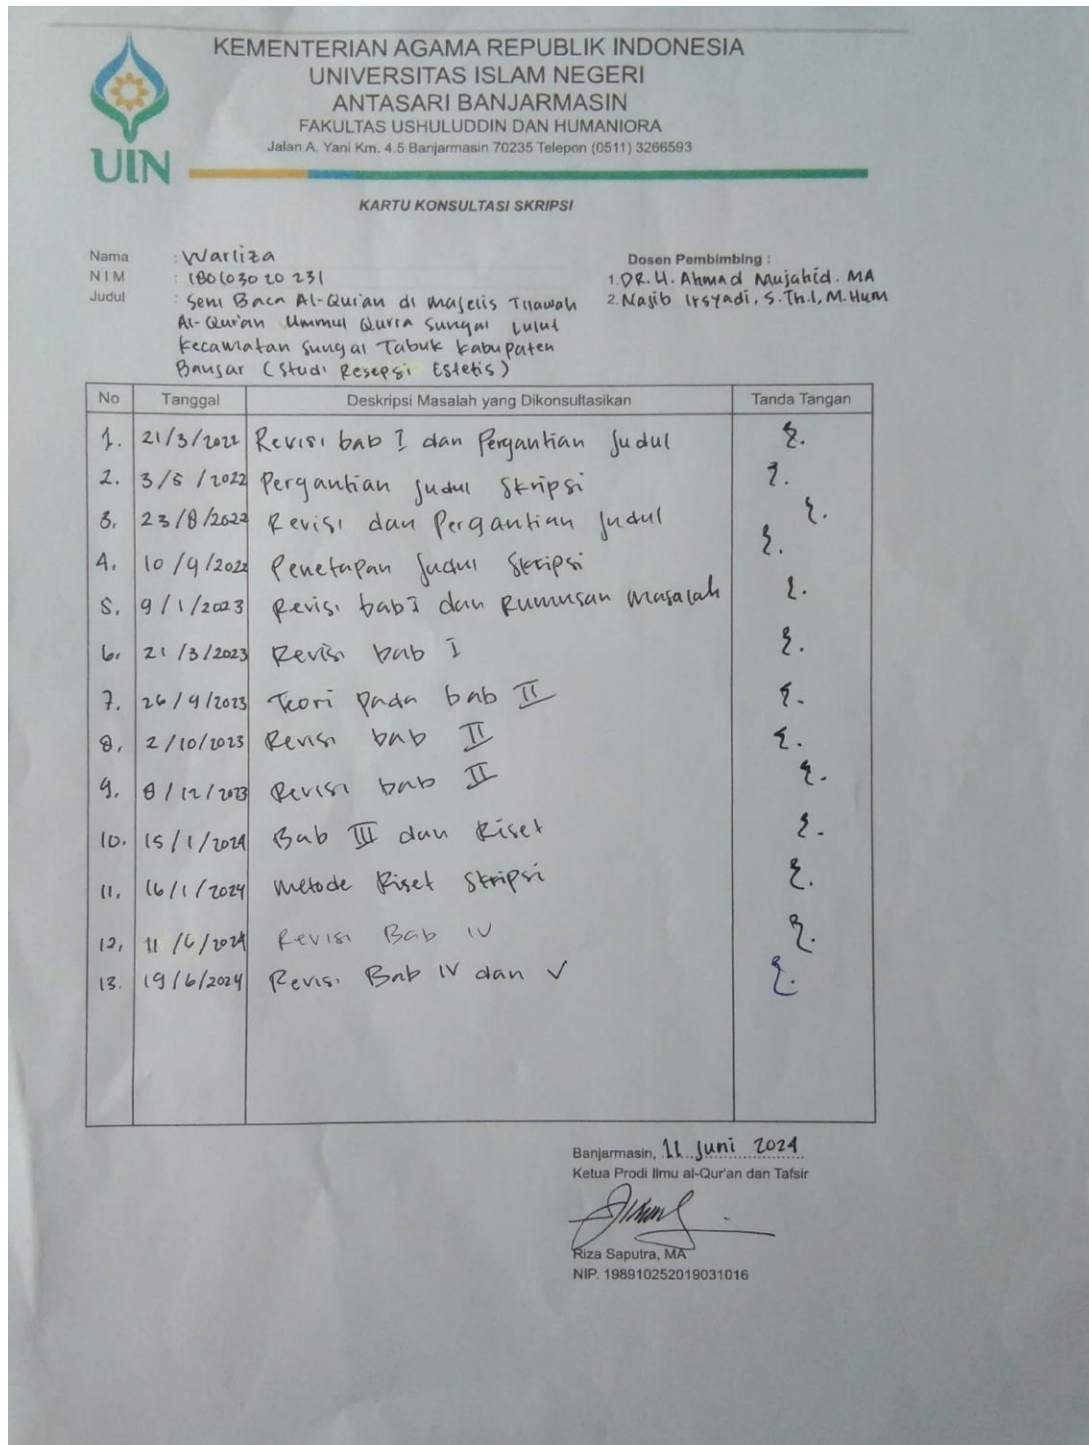 KEMENTERIAN AGAMA REPUBLIK INDONESIA
UNIVERSITAS ISLAM NEGERI
ANTASARI BANJARMASIN
FAKULTAS USHULUDDIN DAN HUMANIORA
Jalan A. Yani Km. 4.5 Banjarmasin 70235 Telepon (0511) 3266593
UIN
KARTU KONSULTASI SKRIPSI
Nama : Warliza
NIM : 180103020231
Judul : Seni Baca Al-Qur'an di Majelis Tilawah
Al-Qur'an Ummul Qurra Sungai Lulut
Kecamatan Sungai Tabuk Kabupaten
Banjar (Studi Resepsi Estetis)
Dosen Pembimbing :
1. DR. H. Ahmad Mujahid. MA
2. Najib Irsyadi, S.Th.I, M.Hum
No Tanggal Deskripsi Masalah yang Dikonsultasikan Tanda Tangan
1. 21/3/2022 Revisi bab I dan Pergantian Judul
2. 3/5/2022 Pergantian Judul Skripsi
3. 23/8/2022 Revisi dan Pergantian Judul
4. 10/9/2022 Penetapan Judul Skripsi
5. 9/1/2023 Revisi bab I dan Rumusan Masalah
6. 21/3/2023 Revisi bab I
7. 26/9/2023 Teori pada bab II
8. 2/10/2023 Revisi bab II
9. 8/12/2023 Revisi bab II
10. 15/1/2024 Bab III dan Riset
11. 16/1/2024 Metode Riset Skripsi
12. 11/6/2024 Revisi Bab IV
13. 19/6/2024 Revisi Bab IV dan V
Banjarmasin, 11 Juni 2024
Ketua Prodi Ilmu al-Qur'an dan Tafsir
Riza Saputra, MA
NIP. 198910252019031016